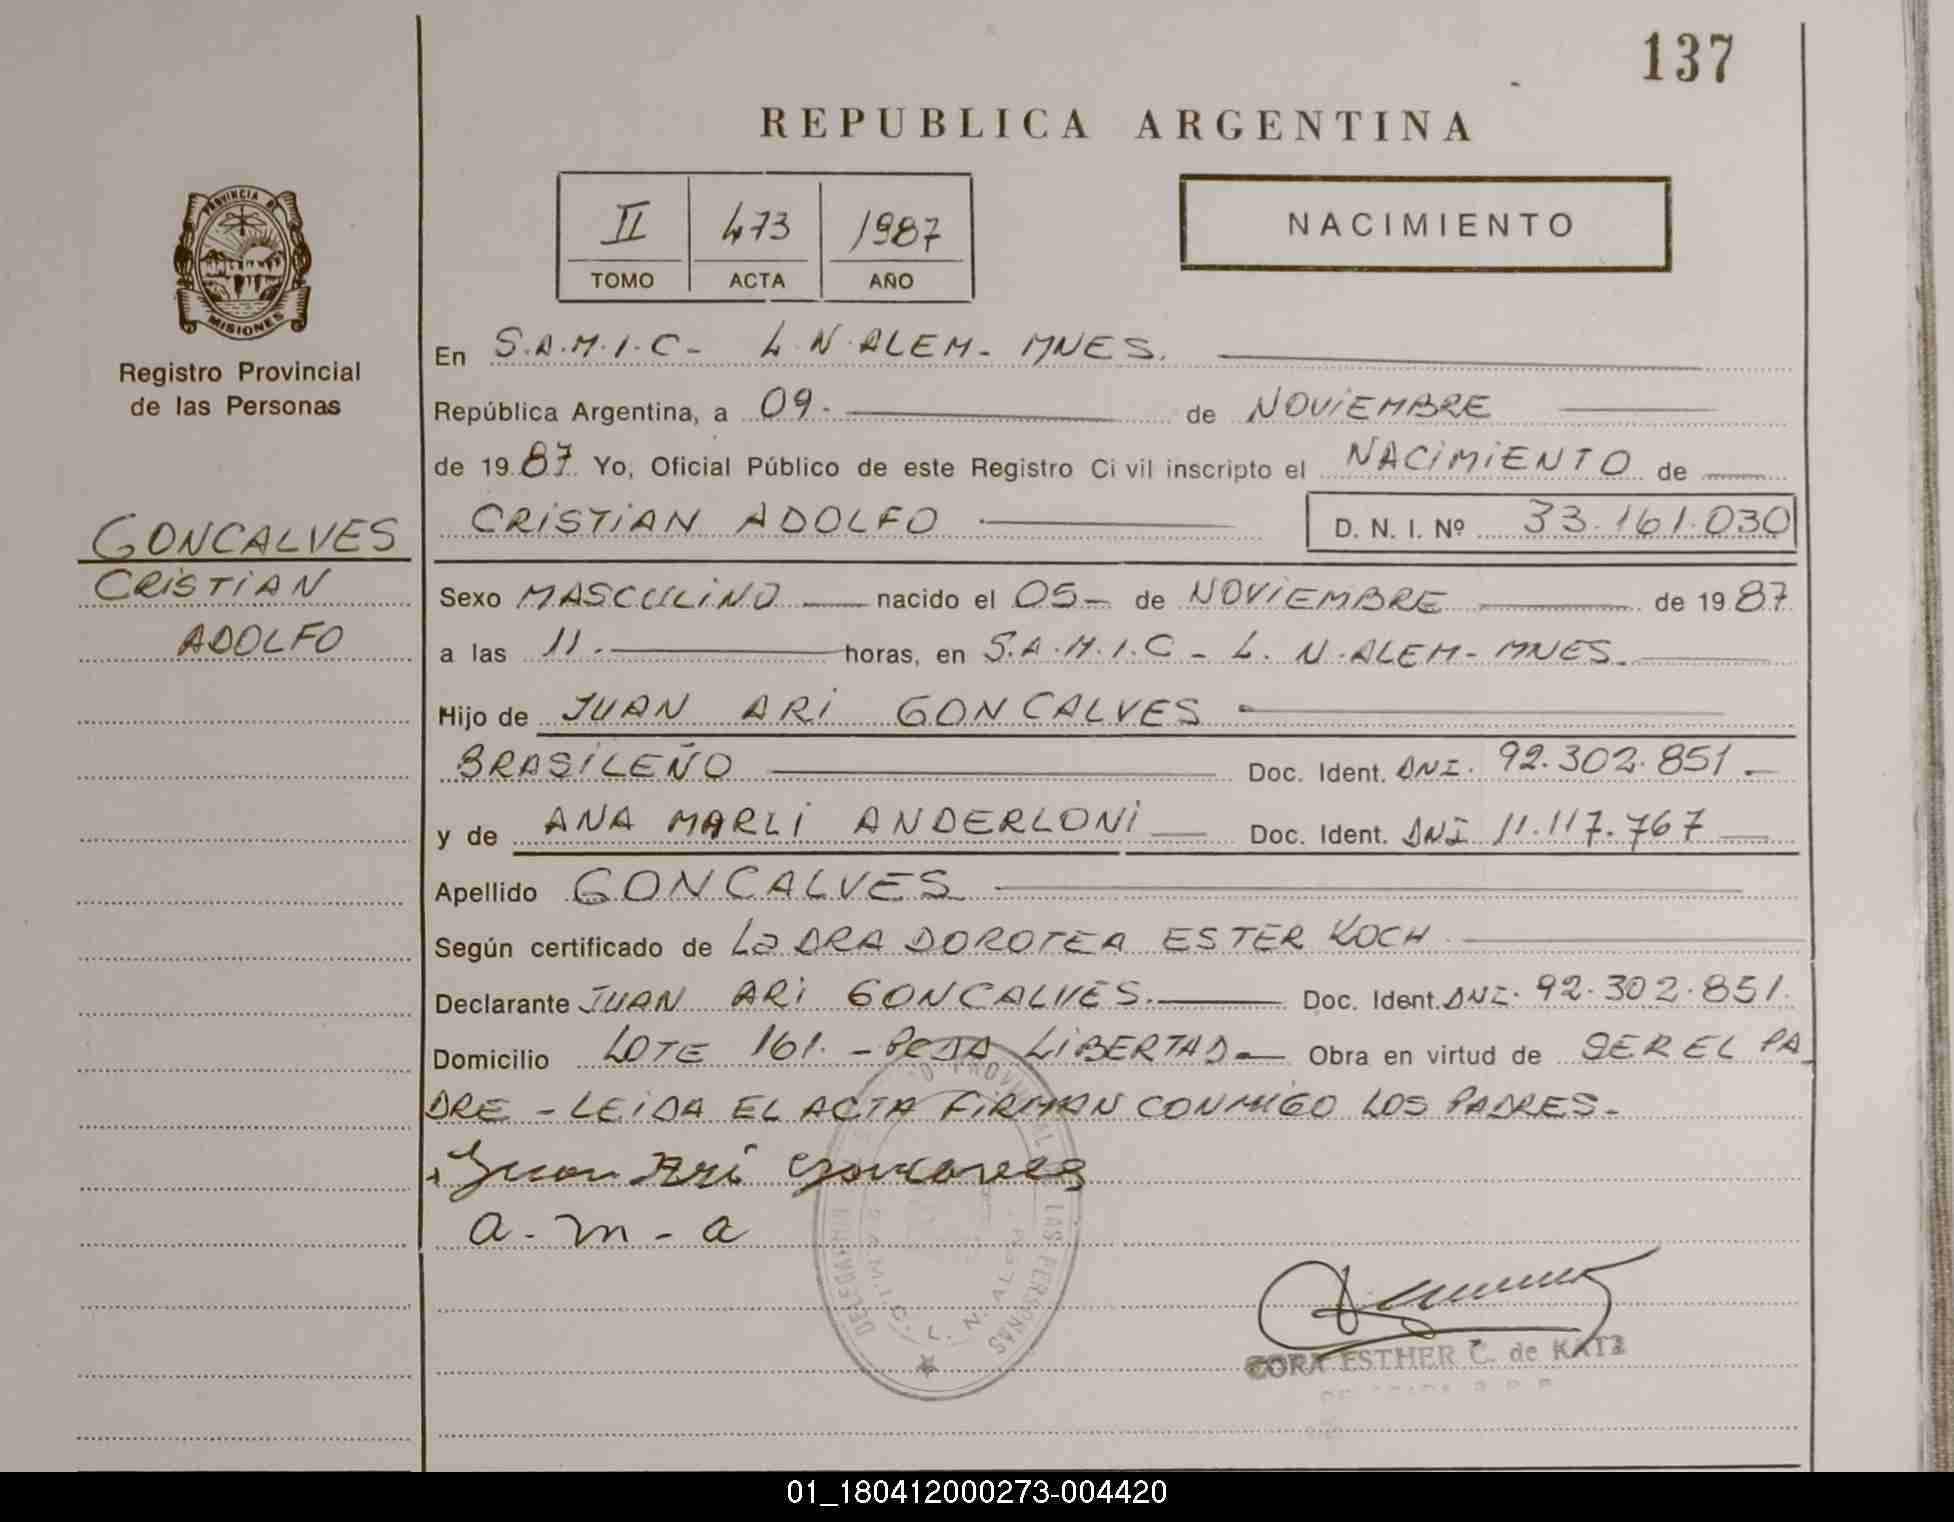 137
REPUBLICA ARGENTINA
II 473 1987
TOMO ACTA AÑO
NACIMIENTO
PROVINCIA DE
MISIONES
Registro Provincial
de las Personas
GONCALVES
CRISTIAN
ADOLFO
En S.A.M.I.C- L.N.ALEM- MNES.
República Argentina, a 09- de NOVIEMBRE
de 1987 Yo, Oficial Público de este Registro Ci vil inscripto el NACIMIENTO de
CRISTIAN ADOLFO D. N. I. Nº 33.161.030
Sexo MASCULINO nacido el 05- de NOVIEMBRE de 1987
a las 11. horas, en S.A.M.I.C - L. N.ALEM- MNES.
Hijo de JUAN ARI GONCALVES
BRASILEÑO Doc. Ident. DNI. 92.302.851
y de ANA MARLI ANDERLONI Doc. Ident. DNI 11.117.767
Apellido GONCALVES
Según certificado de La DRA DOROTEA ESTER KOCH
Declarante JUAN ARI GONCALVES. Doc. Ident. DNI. 92.302.851.
Domicilio LOTE 161. - PCJA LIBERTAD Obra en virtud de SER EL PA
DRE - LEIDA EL ACTA FIRMAN CONMIGO LOS PADRES-
Juan Ari Goncalves
a-m-a
LAS PERSONAS
S.A.M.I.C. L. N. ALEM
CORA ESTHER C. de KATZ
01_180412000273-004420